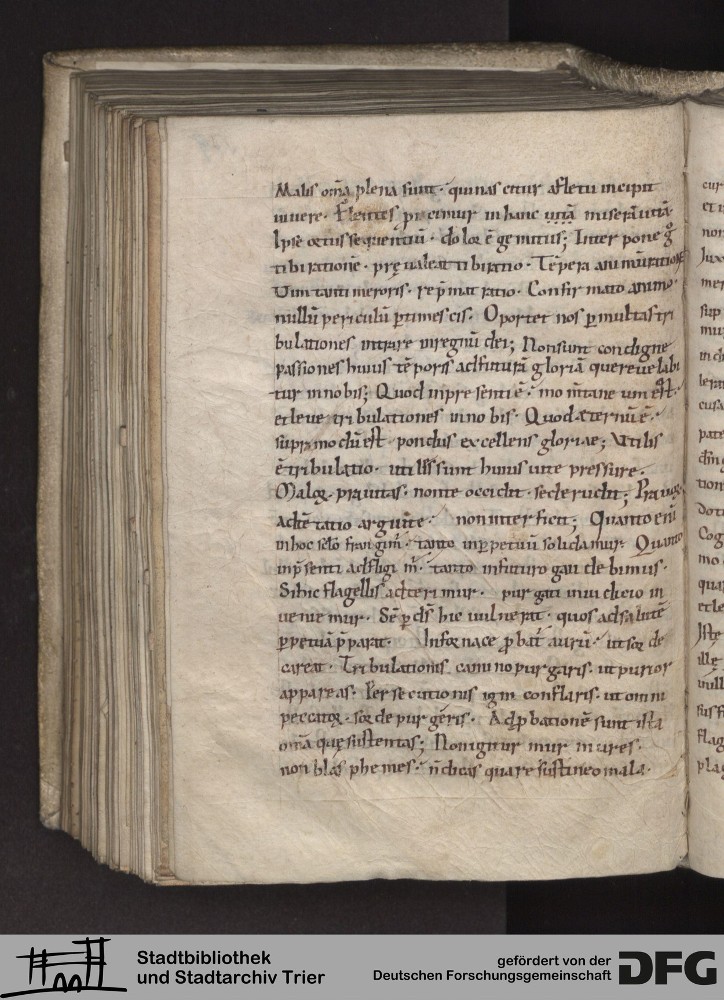 Malis om̄a plena sunt · qui nascitur a fletu incipit
uiuere · Flentes p̄cimur in hanc uitā miserā uitā ·
Ipse ortus sequentiū · dolor ē gemitus; Inter pone ḡ
tibi rationē · pręualeat tibi ratio · Tēpera animū ratione
Uim tanti meroris · rep̄mat ratio · Confirmato animo
nullū periculū ptimescis · Oportet nos p multas tri
bulationes intrare in regnū dei; Non sunt condigne
passiones huius tēporis ad futurā gloriā que reuelabi
tur in nobis; Quod in presenti ē · mom̄tane um est ·
et leue tribulationes in nobis · Quod æternū ē ·
supra modū est · pondus excellens gloriae; Utilis
ē tribulatio · utiles sunt huius uite pressure ·
Maloꝝ prauitas · non te occidit · sed erudit; Prauoꝝ
in hoc sełō frangim̄ · tanto in ppetuū solidamur · Quanto
in p̄senti adfligim̄ · tanto in futuro gaudebimus ·
Si hic flagellis adterimur · purgati in iudicio in
ueniemur · Sēp d̄s hic uulnerat · quos ad salutē
ppetuā p̄parat · In fornace pbat aurū · ut sorde
careat · Tribulationis camino purgaris · ut purior
appareas · Persecutionis igni conflaris · ut omni
peccatoꝝ · sorde purgeris · Ad pbationē sunt ista
om̄a quę sustentas; Non igitur murmures ·
non blasphemes · n̄ dicas quare sustineo mala ·
Stadtbibliothek
und Stadtarchiv Trier
gefördert von der
Deutschen Forschungsgemeinschaft
DFG